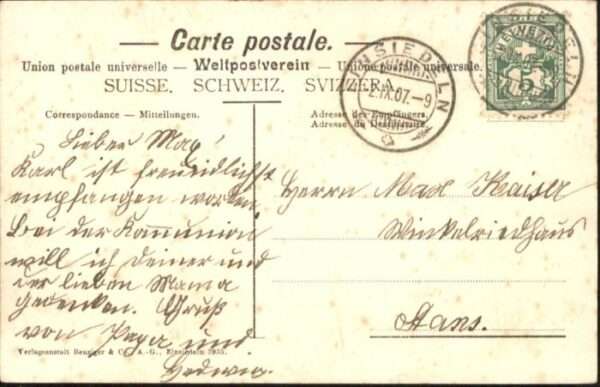 Carte postale.
Union postale universelle — Weltpostverein — Unione postale universale.
SUISSE. SCHWEIZ. SVIZZERA.
EINSIEDELN
2.IX.07.-9
HELVETIA
5
Correspondance — Mitteilungen.
Adresse des Empfängers.
Adresse du Destinataire.
Lieber Max!
Karl ist freundlichst
empfangen worden.
Bei der Kommunion
will ich Deiner und
der lieben Mama
gedenken. Gruß
von Papa und
Hedwig.
Herrn Max Kaiser
Winkelriedhaus
Stans.
Verlagsanstalt Benziger & Co. A.-G., Einsiedeln